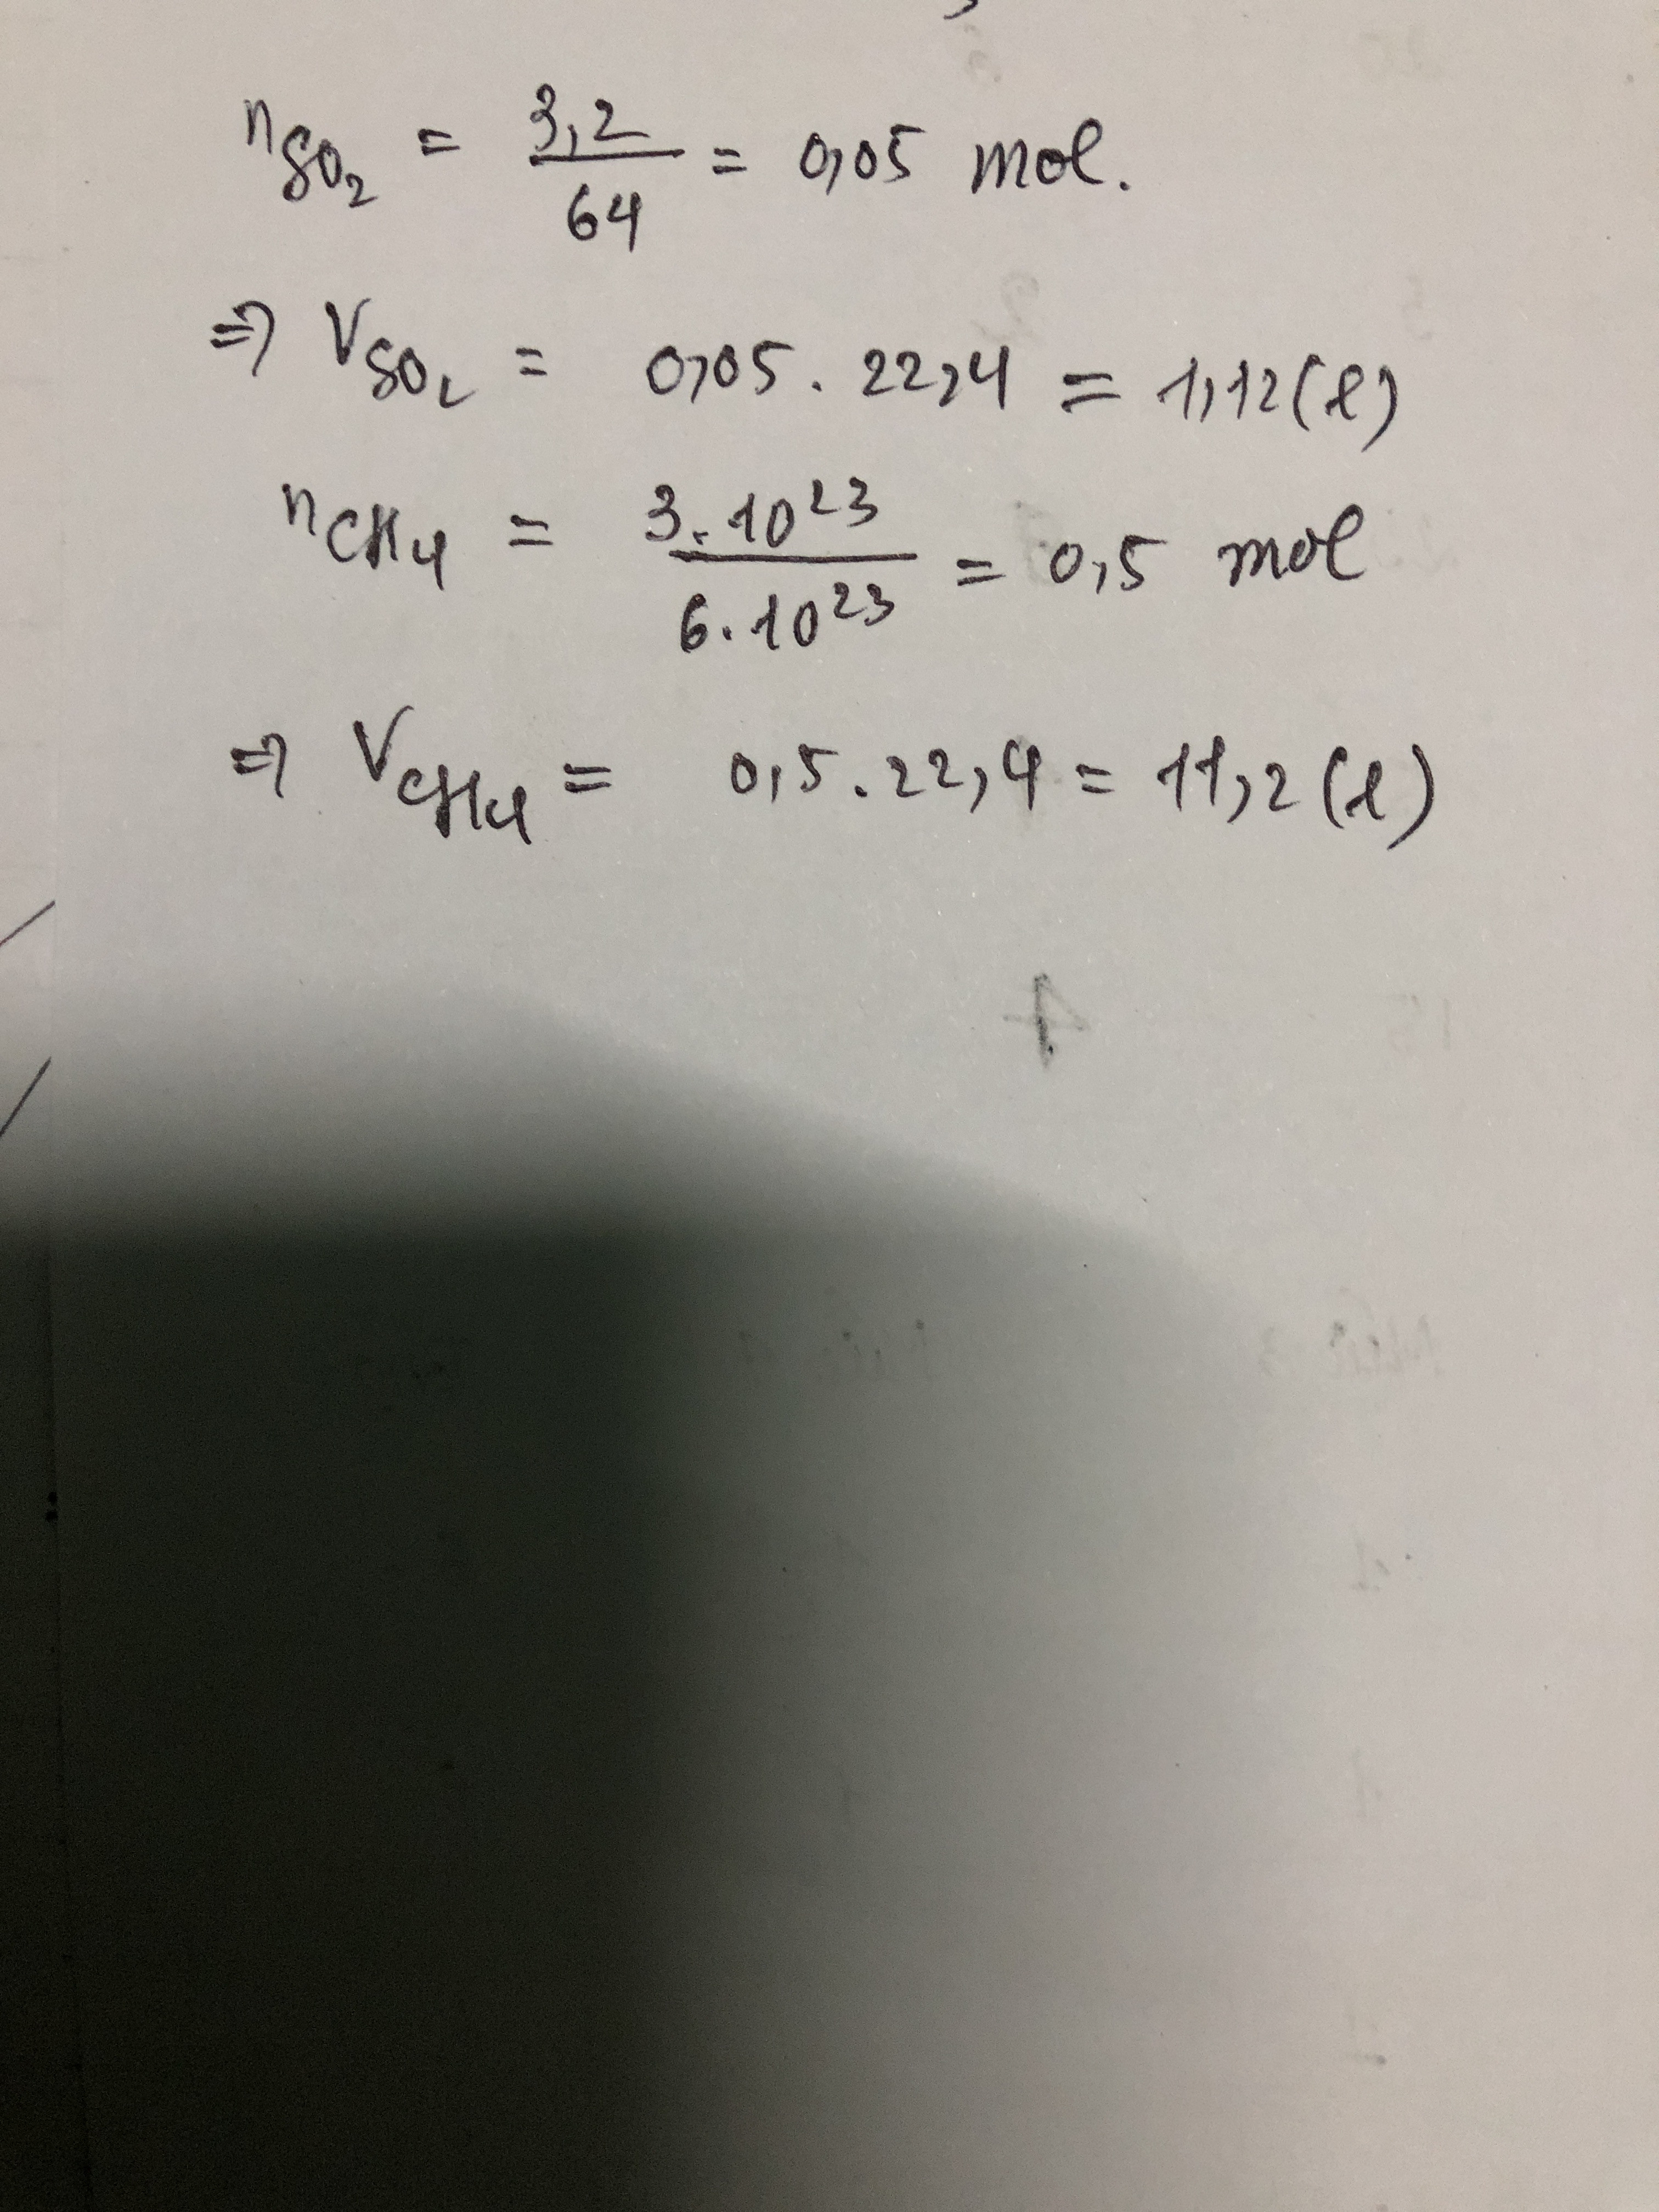 nSO₂ = 3,2/64 = 0,05 mol.
⇒ VSO₂ = 0,05 . 22,4 = 1,12 (l)
nCH₄ = 3.10²³/6.10²³ = 0,5 mol
⇒ VCH₄ = 0,5 . 22,4 = 11,2 (l)